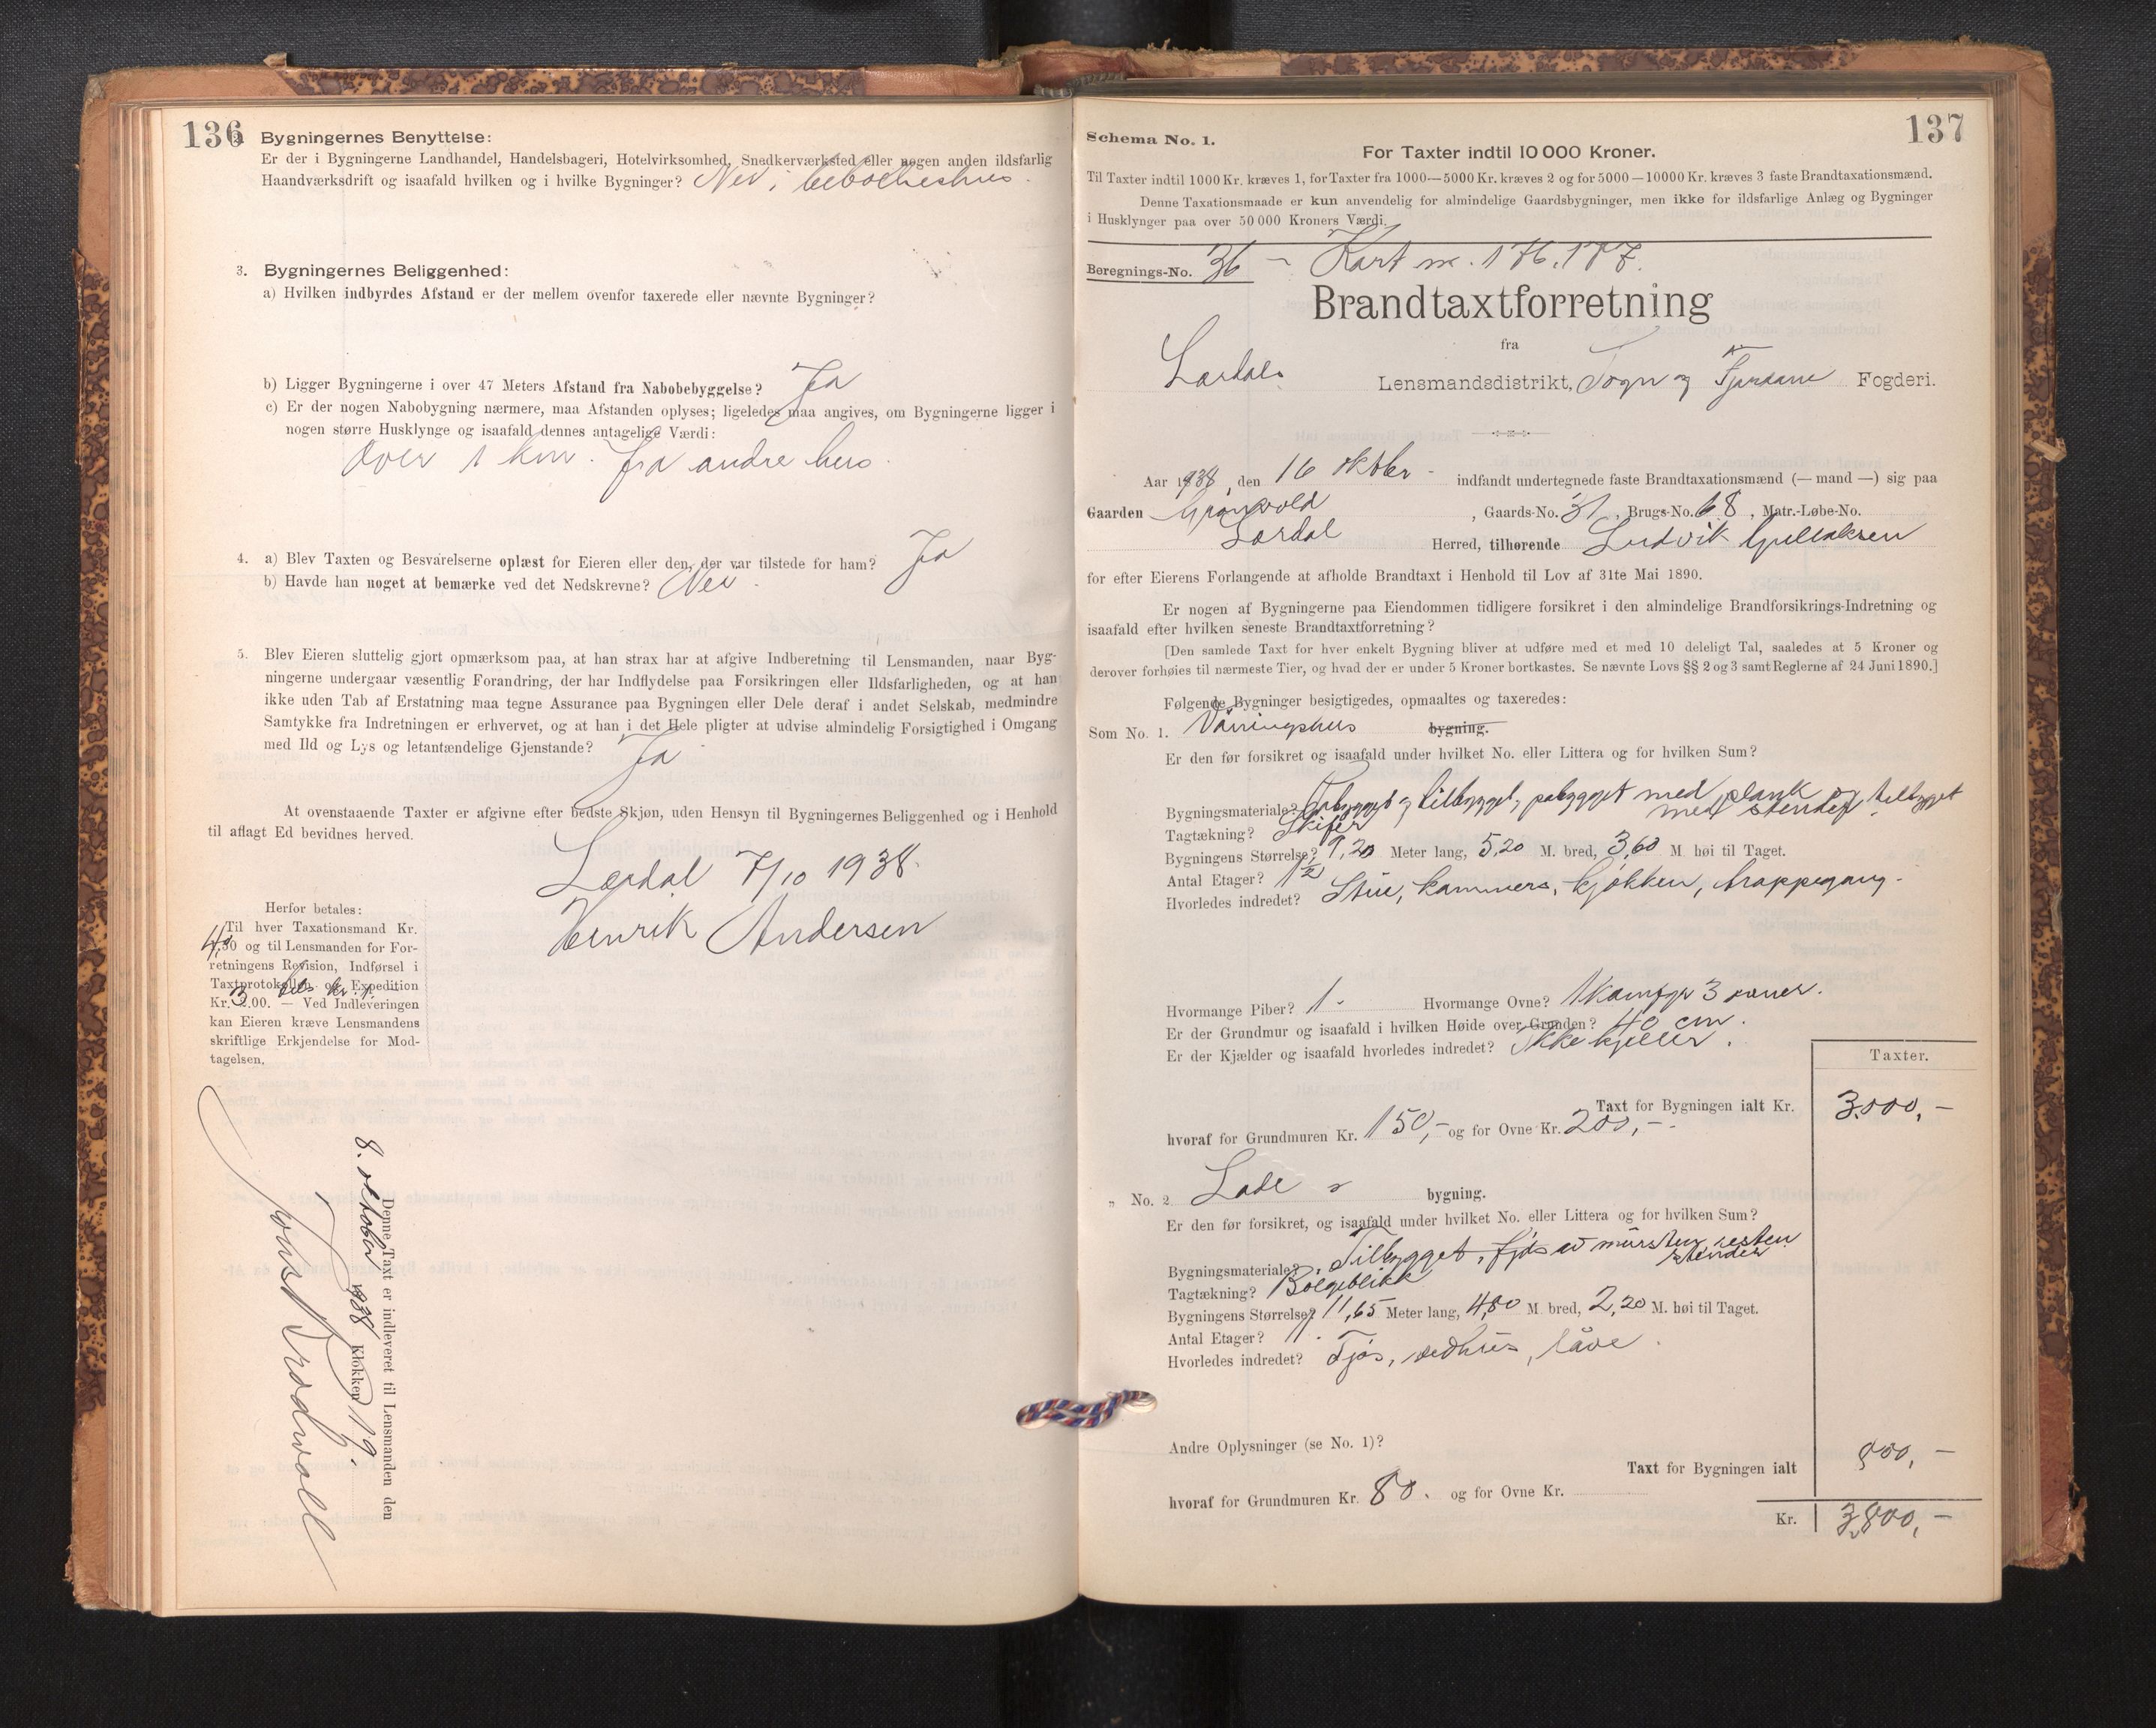 136
2. Bygningernes Benyttelse:
Er der i Bygningerne Landhandel, Handelsbageri, Hotelvirksomhed, Snedkerværksted eller nogen anden ildsfarlig
Haandværksdrift og isaafald hvilken og i hvilke Bygninger? Nei, beboelseshus.
3. Bygningernes Beliggenhed:
a) Hvilken indbyrdes Afstand er der mellem ovenfor taxerede eller nævnte Bygninger?
b) Ligger Bygningerne i over 47 Meters Afstand fra Nabobebyggelse? Ja
c) Er der nogen Nabobygning nærmere, maa Afstanden oplyses; ligeledes maa angives, om Bygningerne ligger i
nogen større Husklynge og isaafald dennes antagelige Værdi:
Over 1 km. fra andre hus.
4. a) Blev Taxten og Besvarelserne oplæst for Eieren eller den, der var tilstede for ham? Ja
b) Havde han noget at bemærke ved det Nedskrevne? Nei.
5. Blev Eieren sluttelig gjort opmærksom paa, at han strax har at afgive Indberetning til Lensmanden, naar Byg-
ningerne undergaar væsentlig Forandring, der har Indflydelse paa Forsikringen eller Ildsfarligheden, og at han
ikke uden Tab af Erstatning maa tegne Assurance paa Bygningen eller Dele deraf i andet Selskab, medmindre
Samtykke fra Indretningen er erhvervet, og at han i det Hele pligter at udvise almindelig Forsigtighed i Omgang
med Ild og Lys og letantændelige Gjenstande? Ja
At ovenstaaende Taxter er afgivne efter bedste Skjøn, uden Hensyn til Bygningernes Beliggenhed og i Henhold
til aflagt Ed bevidnes herved.
Lærdal 7/10 1938.
Henrik Andersen
Herfor betales:
Til hver Taxationsmand Kr.
4,00 og til Lensmanden for For-
retningens Revision, Indførsel i
Taxtprotokollen og Expedition
Kr. 3.00. — Ved Indleveringen
kan Eieren kræve Lensmandens
skriftlige Erkjendelse for Mod-
tagelsen.
Denne Taxt er indleveret til Lensmanden den
8. oktober 1938 Klokken 19.
137
Schema No. 1.
For Taxter indtil 10 000 Kroner.
Til Taxter indtil 1000 Kr. kræves 1, for Taxter fra 1000—5000 Kr. kræves 2 og for 5000—10000 Kr. kræves 3 faste Brandtaxationsmænd.
Denne Taxationsmaade er kun anvendelig for almindelige Gaardsbygninger, men ikke for ildsfarlige Anlæg og Bygninger
i Husklynger paa over 50 000 Kroners Værdi.
Beregnings-No. 36 — Kart nr. 176.177.
Brandtaxtforretning
fra
Lærdals Lensmandsdistrikt, Sogn og Fjordane Fogderi.
Aar 1938, den 16 oktber - indfandt undertegnede faste Brandtaxationsmænd (— mand —) sig paa
Gaarden Grønvold, Gaards-No. 31, Brugs-No. 68, Matr.-Løbe-No.
Lærdal Herred, tilhørende Ludvik Gullaksen
for efter Eierens Forlangende at afholde Brandtaxt i Henhold til Lov af 31te Mai 1890.
Er nogen af Bygningerne paa Eiendommen tidligere forsikret i den almindelige Brandforsikrings-Indretning og
isaafald efter hvilken seneste Brandtaxtforretning?
[Den samlede Taxt for hver enkelt Bygning bliver at udføre med et med 10 deleligt Tal, saaledes at 5 Kroner og
derover forhøies til nærmeste Tier, og hvad der er under 5 Kroner bortkastes. Se nævnte Lovs §§ 2 og 3 samt Reglerne af 24 Juni 1890.]
Følgende Bygninger besigtigedes, opmaaltes og taxeredes:
Som No. 1. Våningshus bygning.
Er den før forsikret og isaafald under hvilket No. eller Littera og for hvilken Sum?
Bygningsmateriale? og tilbygget, påbygget med plank og tilbygget
med stender
Tagtækning? Skifer
Bygningens Størrelse? 9,20 Meter lang, 5,20 M. bred, 3,60 M høi til Taget.
Antal Etager? 1 1/2
Hvorledes indredet? Stue, kammers, kjøkken, trappegang.
Hvormange Piber? 1. Hvormange Ovne? 1 komfyr 3 ovner.
Er der Grundmur og isaafald i hvilken Høide over Grunden? 40 cm.
Er der Kjælder og isaafald hvorledes indredet? Ikke kjeller.
Taxter.
Taxt for Bygningen ialt Kr. 3.000,-
hvoraf for Grundmuren Kr. 150,- og for Ovne Kr. 200,-.
„ No. 2 Lade bygning.
Er den før forsikret, og isaafald under hvilket No. eller Littera og for hvilken Sum?
Bygningsmateriale? Tilbygget, fjøs av mursten, resten
stender
Tagtækning? Bølgeblikk
Bygningens Størrelse? 11,65 Meter lang, 4,80 M bred, 2,20 M. høi til Taget.
Antal Etager? 1.
Hvorledes indredet? Fjøs, vedhus, låve.
Andre Oplysninger (se No. 1)?
Taxt for Bygningen ialt 800,-
hvoraf for Grundmuren Kr. 80. og for Ovne Kr.
Kr. 3,800,-